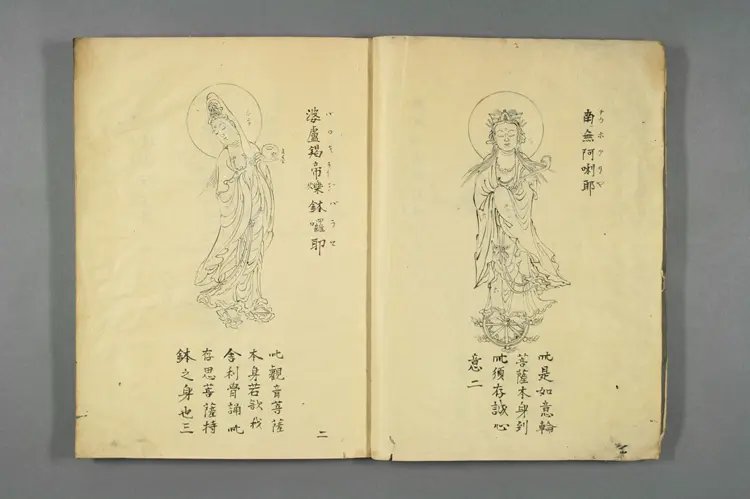 南無阿唎耶
此是如意輪
菩薩本身到
此須存誠心
意二
婆盧羯帝爍鉢囉耶
此觀音菩薩
本身若欲我
舍利骨誦此
存思菩薩持
鉢之身也三
二